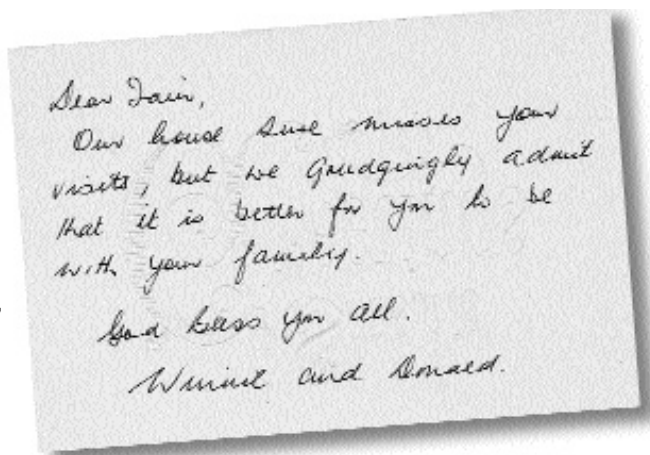 Dear Iain,
Our house sure misses your
visits, but we Grudgingly admit
that it is better for you to be
with your family.
God bless you all.
Winnie and Donald.